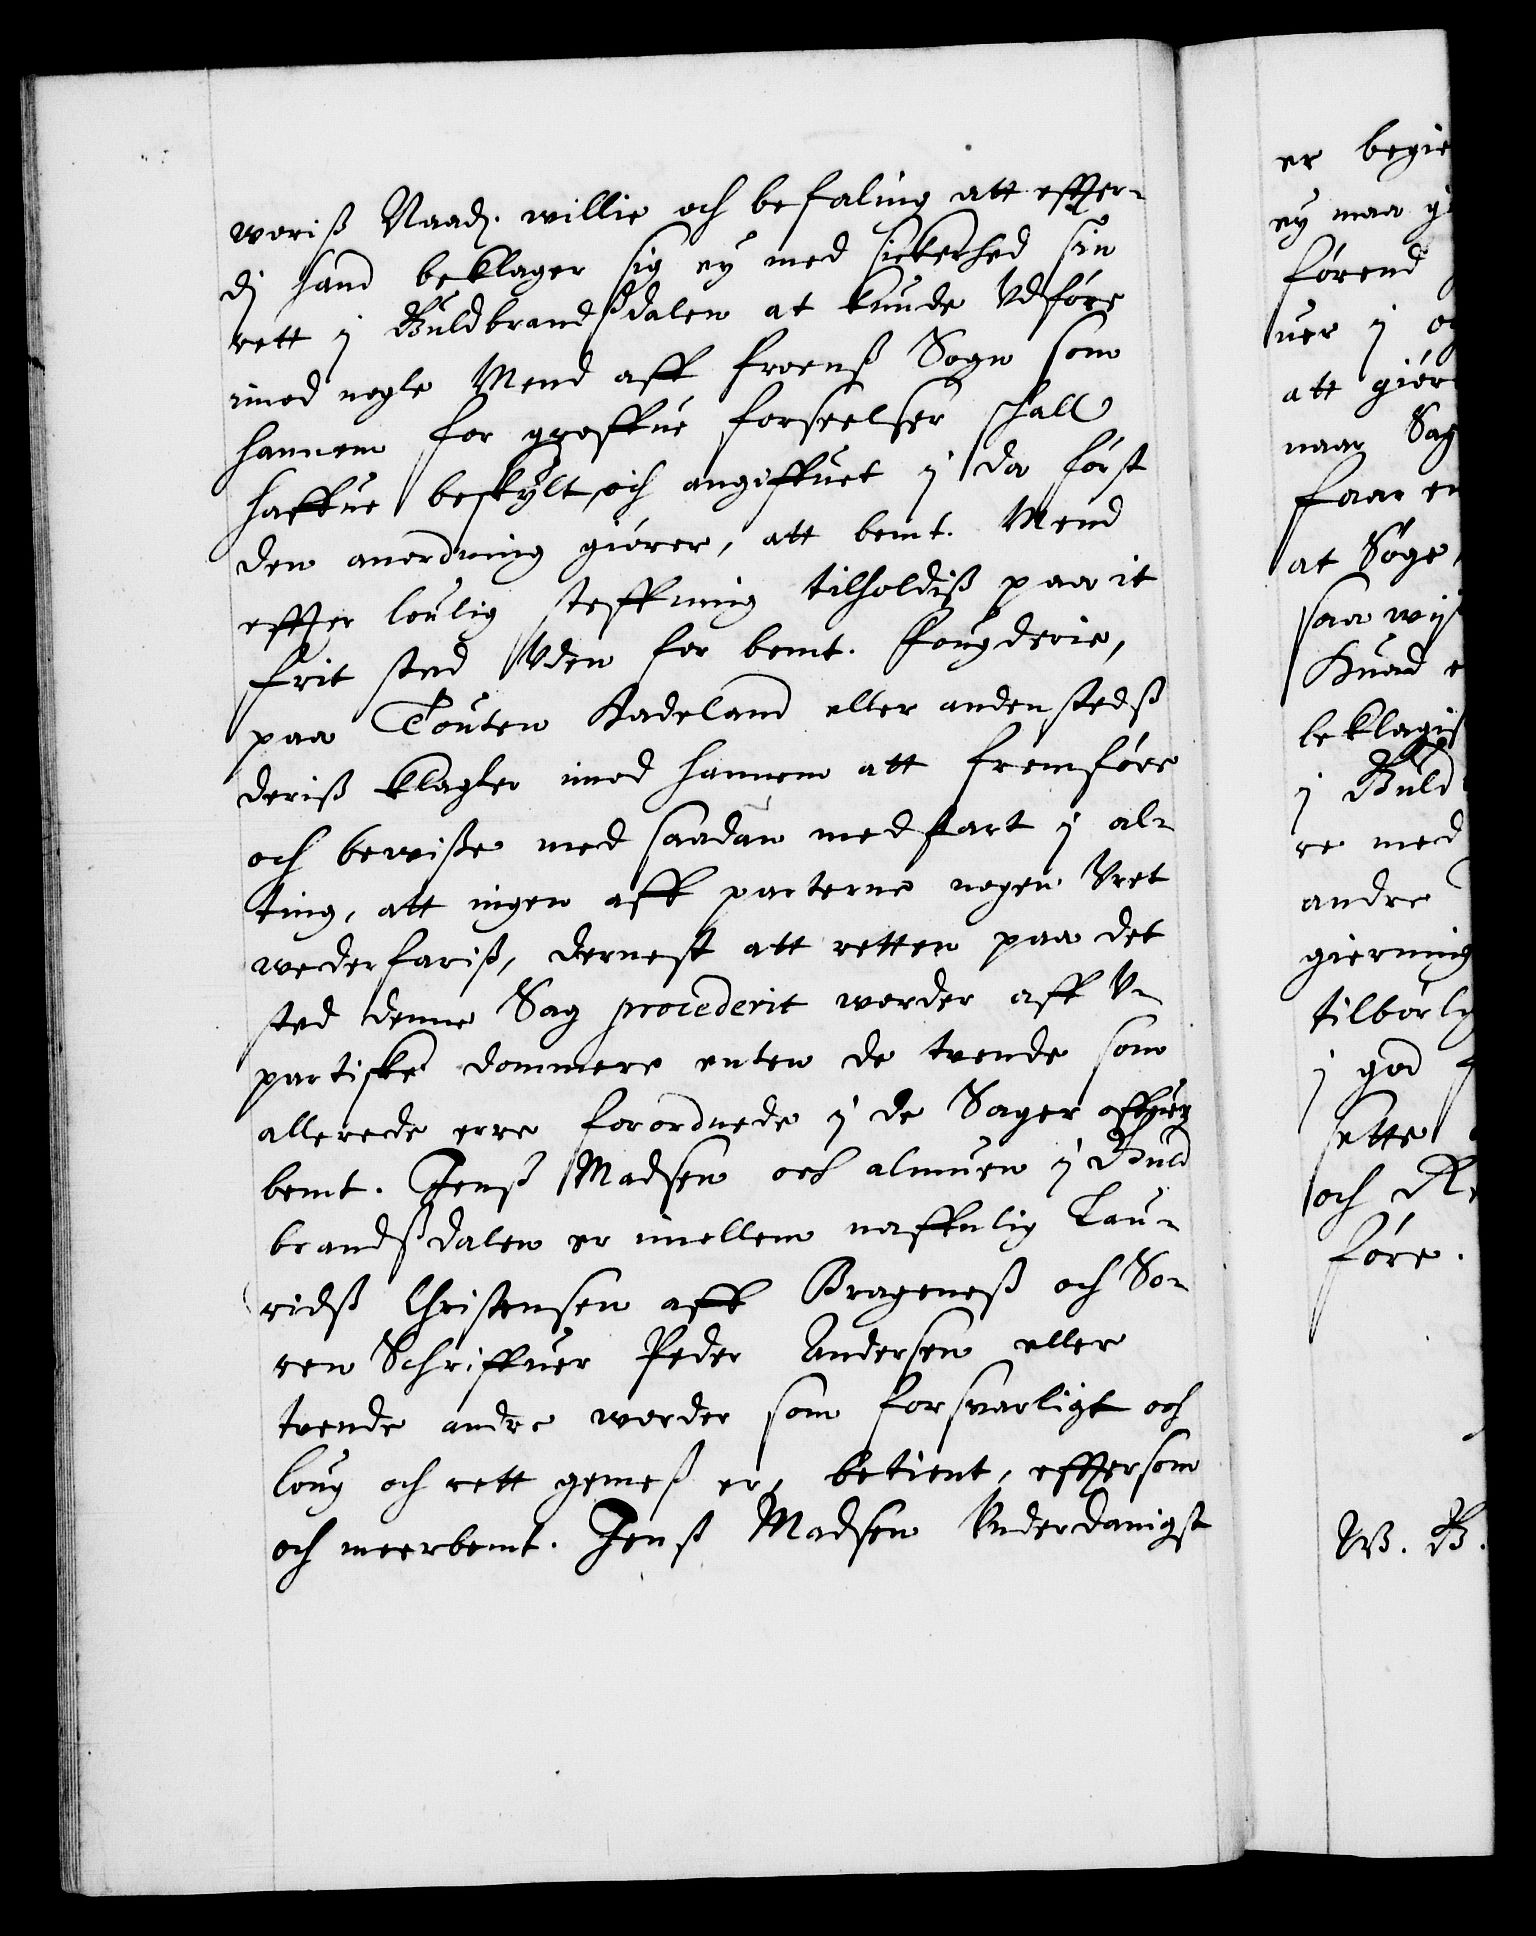 woriß Naad. willie och befaling att effter-
di hand beklager sig ey med sickerhed sin
rett i Guldbrandßdalen at kunde Udføre
imod nogle Mend aff froenß Sogn som
hannem for groffue forseelser schall
haffue beskylt, och angiffuet i da først
den anordning giører, att bemt. Mend
effter loulig steffning tilholdiß paa it
frit sted Uden for bemt. fougderie,
paa Touten Hadeland eller andenstedß
deriß klagler imod hannem att fremføre
och bewiße med saadan medfart i al-
ting, att ingen aff parterne nogen Uret
wederfariß, dernest att retten paa det
sted denne Sag procederit worder aff U-
partiske dommere enten de tvende som
allerede erre forordnede i de Sager
bemt. Jenß Madsen och almuen i Guld
brandßdalen er imellem naffnlig Lau-
ridß Christensen aff Brageneß och So-
ren Schriffuer Peder Andersen eller
tvende andre worder som forsvarligt och
loug och rett gemeß er, betient, efftersom
och meerbemt. Jenß Madsen Underdanigst
er begie
ey maa gi
førend
uer i o
att giør
naar Sag
faar en
at Søge,
saa wijt
beklagis
i Guld
re med
andre
gierning
tilbørlg
i god f
sette
och
føre.
W. B.